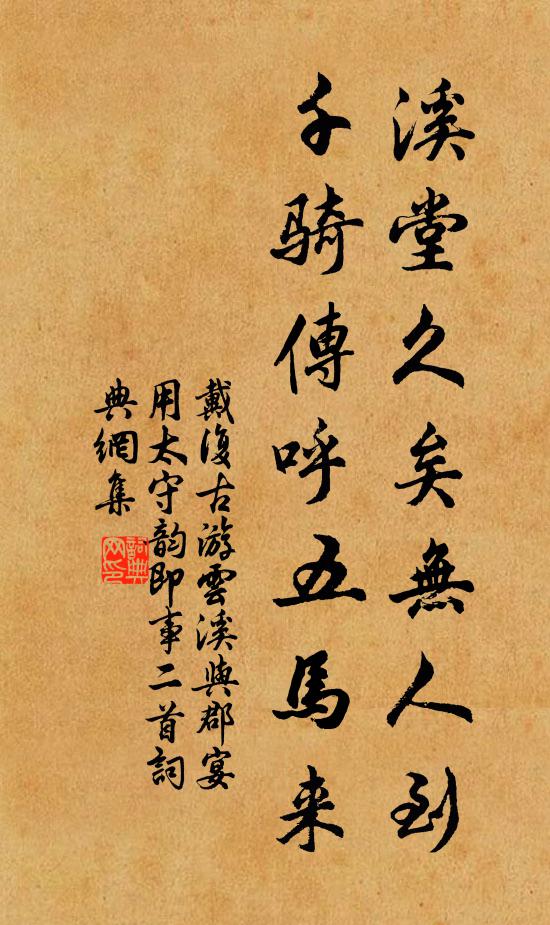 溪堂久矣無人到
千騎傳呼五馬来
戴復古游雲溪與郡宴
用太守韵即事二首詞
典網集
詞典網印